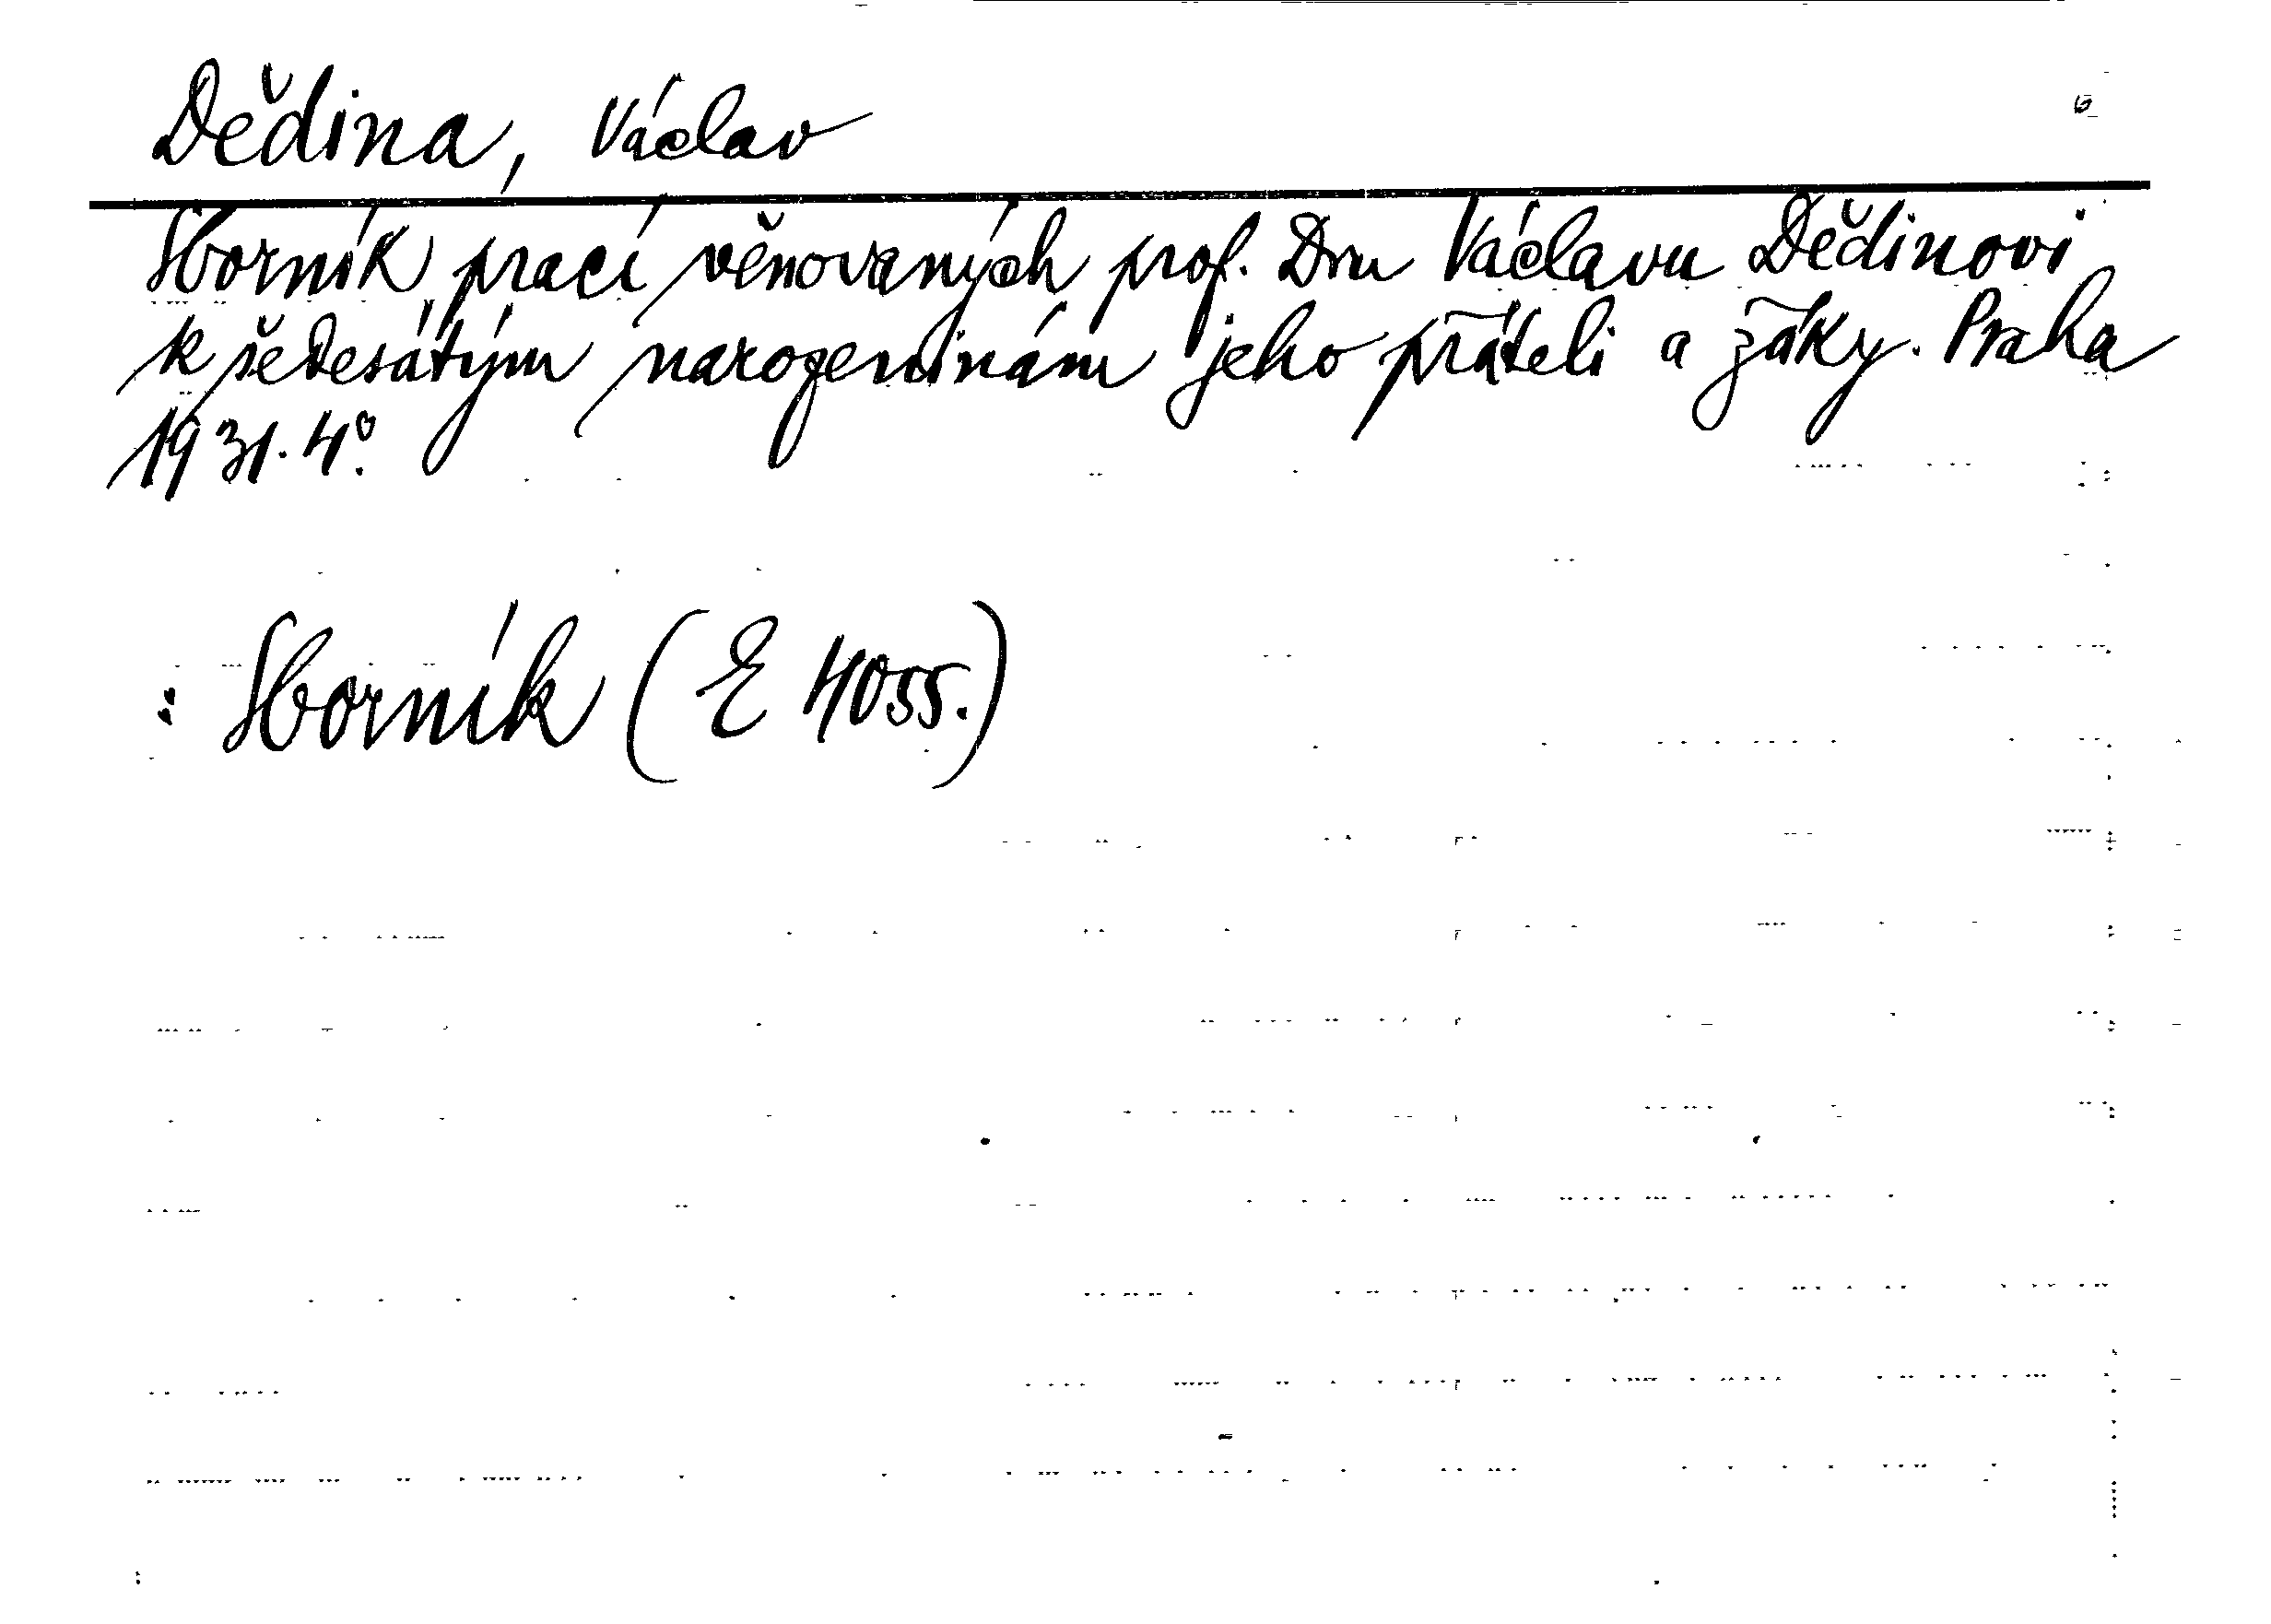 Dědina, Václav
Sborník prací věnovaných prof. Dru Václavu Dědinovi
k šedesátým narozeninám jeho přáteli a žáky. Praha
1931. 4°.
: Sborník (E 4055.)